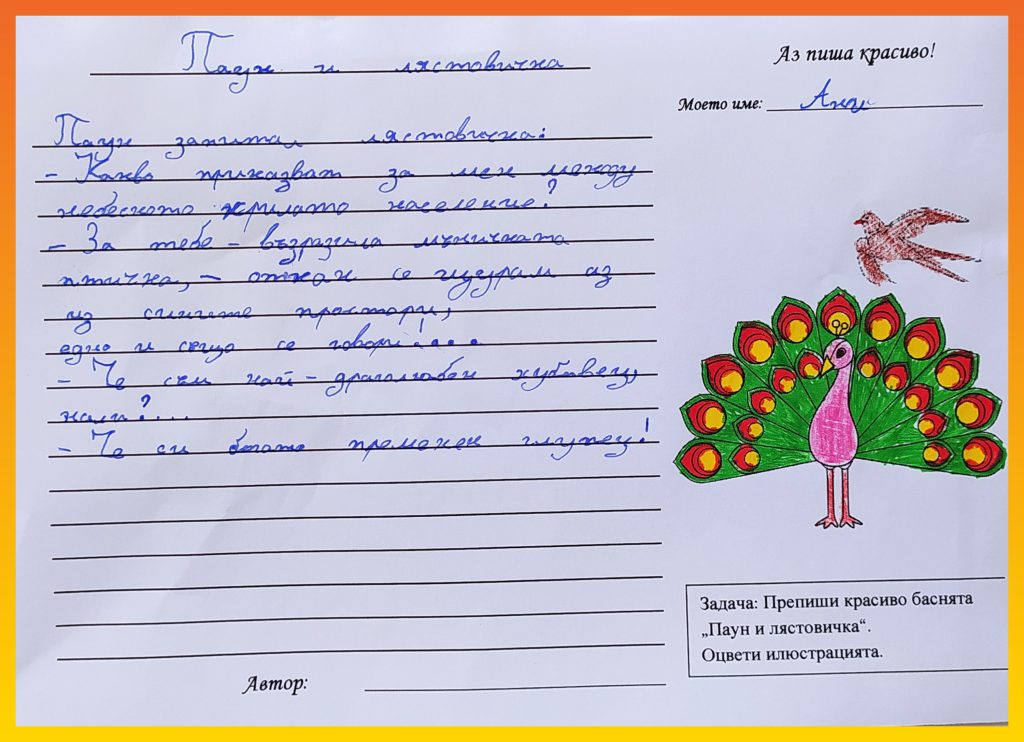 Паун и лястовичка
Аз пиша красиво!
Моето име: Ани
Паун запитал лястовичка:
- Какво приказват за мен между
небесното крилато население?
- За тебе - възразила мъничката
птичка, - откак се щурам аз
из сините простори,
едно и също се говори!...
- Че съм най-драголюбен хубавец,
нали?...
- Че си богато пременен глупец!
Автор:
Задача: Препиши красиво баснята
„Паун и лястовичка“.
Оцвети илюстрацията.